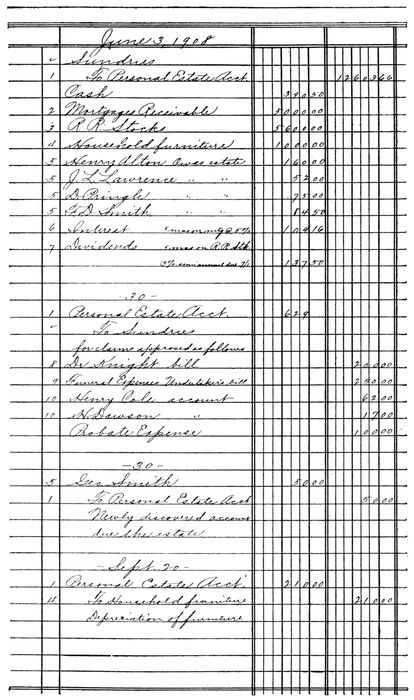 June 3, 1908
" Sundries
1 To Personal Estate Acct. 12608 66
Cash 390 50
2 Mortgages Receivable 5000 00
3 R R Stocks 5600 00
4 Household furniture 1000 00
5 Henry Alton owes estate 160 00
5 J. L. Lawrence " " 52 00
5 D Pringle " " 75 00
5 F. D. Smith " " 84 50
6 Interest on mtg @ 5% 109 16
7 Dividends on R.R. Stk
semi annual due 137 50
-30-
1 Personal Estate Acct. 629
" To Sundries
for claims approved as follows
8 Dr Knight bill 200 00
9 Funeral Expenses Undertaker's bill 250 00
10 Henry Cole account 62 00
10 H. Dawson " 17 00
Probate Expense 100 00
-30-
5 Geo. Smith 50 00
1 To Personal Estate Acct 50 00
Newly discovered account
due the estate
-Sept. 20-
1 Personal Estate Acct. 210 00
4 To Household furniture 210 00
Depreciation of furniture